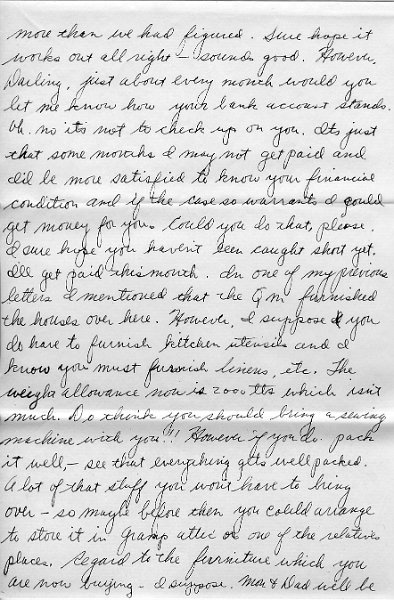 more than we had figured. Sure hope it
works out all right - sounds good. However,
Darling, just about every month would you
let me know how your bank account stands.
Oh. no it's not to check up on you. Its just
that some months I may not get paid and
I'd be more satisfied to know your financial
condition and if the case so warrants I could
get money for you. Could you do that, please.
I sure hope you haven't been caught short yet.
I'll get paid this month. In one of my previous
letters I mentioned that the Q M furnished
the houses over here. However, I suppose you
do have to furnish kitchen utensils and I
know you must furnish linens, etc. The
weight allowance now is 2000 lbs which isn't
much. Do think you should bring a sewing
machine with you!!! However if you do. pack
it well, - see that everything gets well packed.
A lot of that stuff you won't have to bring
over - so maybe before then you could arrange
to store it in Gramp attic or one of the relatives
places. Regard to the furniture which you
are now buying - I suppose. Mom & Dad will be